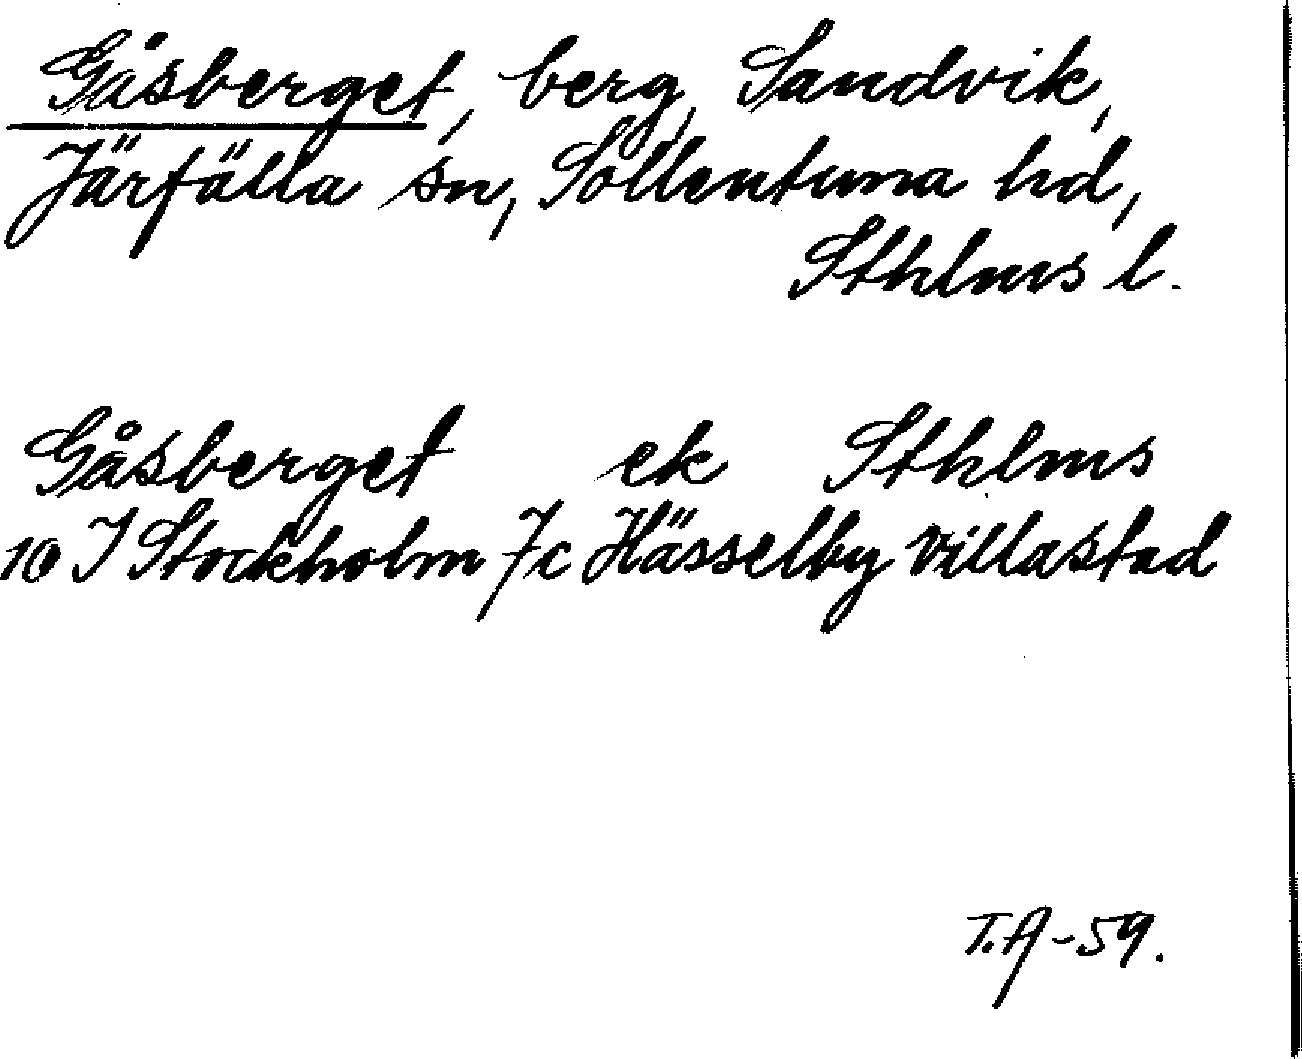 Gåsberget, berg, Sandvik,
Järfälla sn, Sollentuna hd,
Sthlms l.
Gåsberget ek Sthlms
10 I Stockholm 7c Hässelby Villastad
T.A-59.